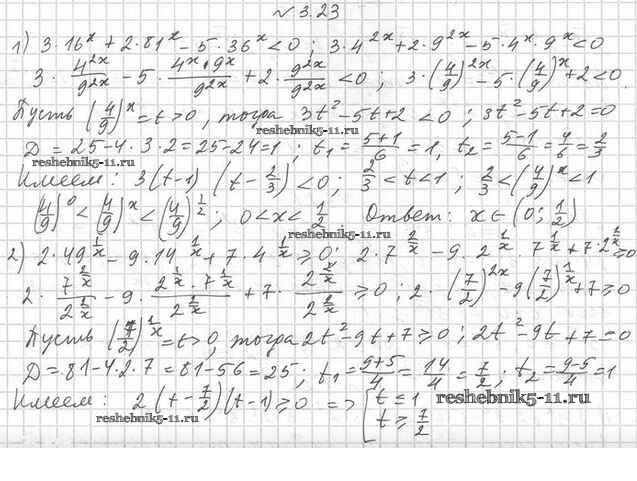 № 3.23
1) 3·16^x + 2·81^x − 5·36^x < 0 ; 3·4^{2x} + 2·9^{2x} − 5·4^x·9^x < 0
3·\frac{4^{2x}}{9^{2x}} − 5·\frac{4^x·9^x}{9^{2x}} + 2·\frac{9^{2x}}{9^{2x}} < 0 ; 3·(\frac{4}{9})^{2x} − 5·(\frac{4}{9})^x + 2 < 0.
Пусть (\frac{4}{9})^x = t > 0, тогда 3t² − 5t + 2 < 0 ; 3t² − 5t + 2 = 0
reshebnik5-11.ru
D = 25 − 4·3·2 = 25 − 24 = 1 ; t₁ = \frac{5+1}{6} = 1, t₂ = \frac{5−1}{6} = \frac{4}{6} = \frac{2}{3}
reshebnik5-11.ru
Имеем: 3(t−1)(t−\frac{2}{3}) < 0 ; \frac{2}{3} < t < 1 ; \frac{2}{3} < (\frac{4}{9})^x < 1
(\frac{4}{9})^0 < (\frac{4}{9})^x < (\frac{4}{9})^{\frac{1}{2}} ; 0 < x < \frac{1}{2} Ответ: x ∈ (0; \frac{1}{2})
reshebnik5-11.ru
2) 2·49^{\frac{1}{x}} − 9·14^{\frac{1}{x}} + 7·4^{\frac{1}{x}} ⩾ 0 ; 2·7^{\frac{2}{x}} − 9·2^{\frac{1}{x}}·7^{\frac{1}{x}} + 7·2^{\frac{2}{x}} ⩾ 0
2·\frac{7^{\frac{2}{x}}}{2^{\frac{2}{x}}} − 9·\frac{2^{\frac{1}{x}}·7^{\frac{1}{x}}}{2^{\frac{2}{x}}} + 7·\frac{2^{\frac{2}{x}}}{2^{\frac{2}{x}}} ⩾ 0 ; 2·(\frac{7}{2})^{2x} − 9(\frac{7}{2})^{\frac{1}{x}} + 7 ⩾ 0
Пусть (\frac{7}{2})^{\frac{1}{x}} = t > 0, тогда 2t² − 9t + 7 ⩾ 0 ; 2t² − 9t + 7 = 0
D = 81 − 4·2·7 = 81 − 56 = 25 ; t₁ = \frac{9+5}{4} = \frac{14}{4} = \frac{7}{2} ; t₂ = \frac{9−5}{4} = 1
Имеем: 2(t−\frac{7}{2})(t−1) ⩾ 0 => [t ⩽ 1
t ⩾ \frac{7}{2}
reshebnik5-11.ru
reshebnik5-11.ru